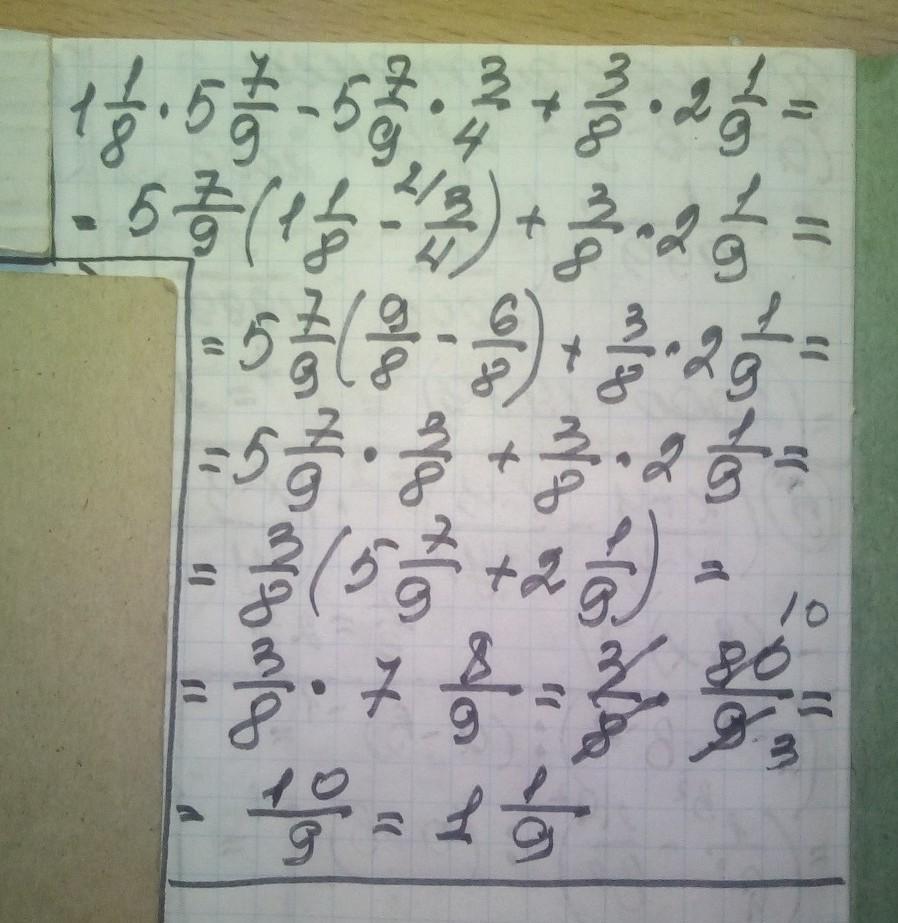 1 1/8 · 5 7/9 - 5 7/9 · 3/4 + 3/8 · 2 1/9 =
= 5 7/9 (1 1/8 - 2/ 3/4) + 3/8 · 2 1/9 =
= 5 7/9 (9/8 - 6/8) + 3/8 · 2 1/9 =
= 5 7/9 · 3/8 + 3/8 · 2 1/9 =
= 3/8 (5 7/9 + 2 1/9) =
= 3/8 · 7 8/9 = 3/8 · 80/9 10 3 =
= 10/9 = 1 1/9